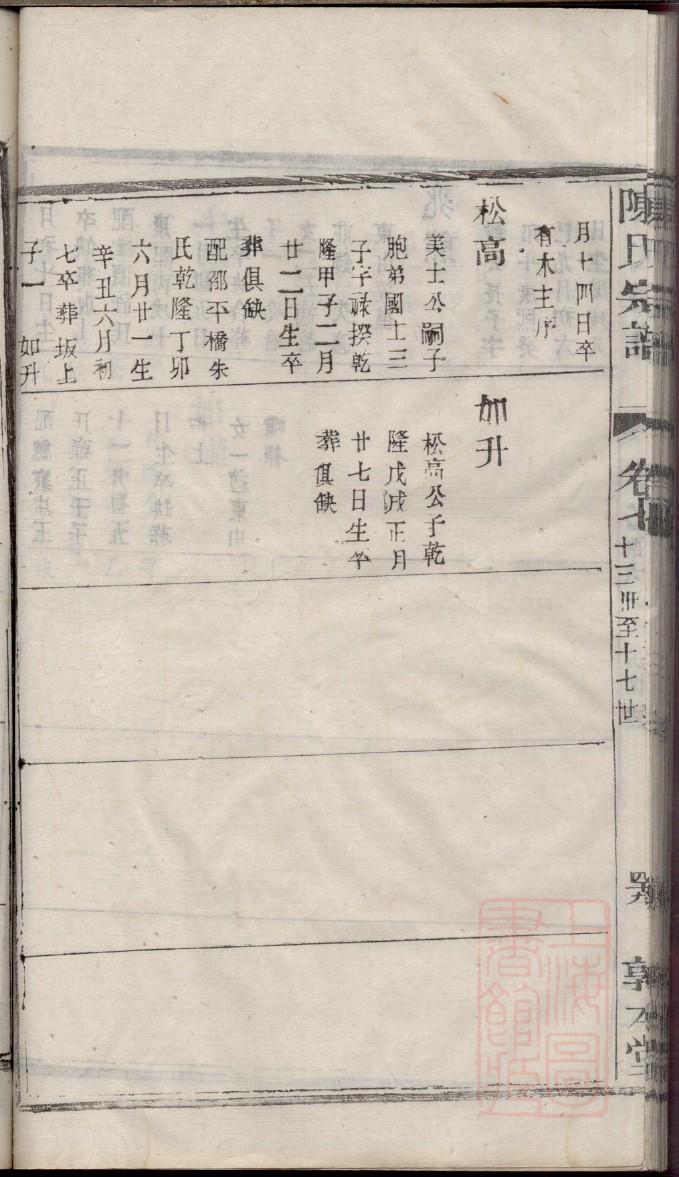 月十四日卒
有木主序
松高
美士公嗣子
胞弟國士三
子字祿揆乾
隆甲子二月
廿二日生卒
葬俱缺
配邵平橋朱
氏乾隆丁卯
六月廿一生
辛丑六月初
七卒葬坂上
子一 如升
如升
松高公子乾
隆戊戌正月
廿七日生卒
葬俱缺
陳氏宗譜
卷七
十三世至十七世
敦本堂
上海圖書館藏